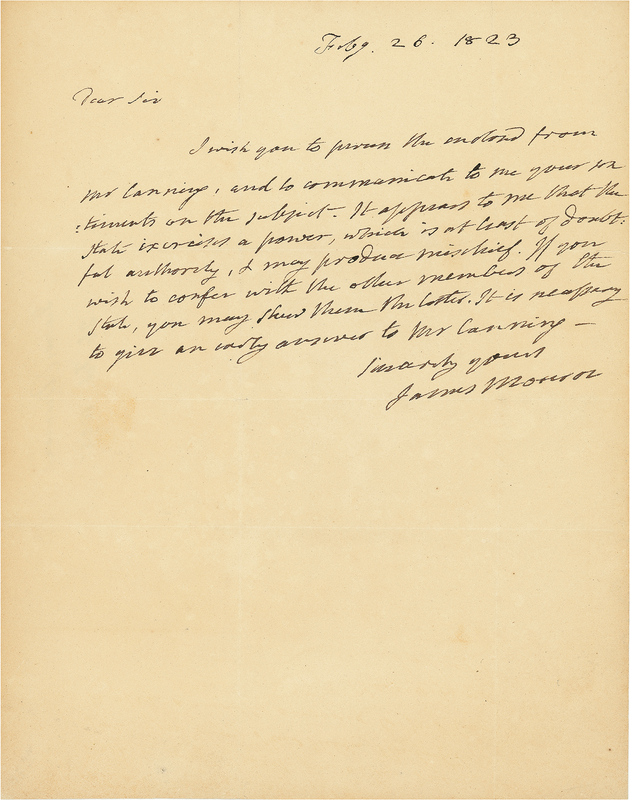 Feby. 26. 1823
Dear Sir
I wish you to peruse the enclosed from
Mr Canning, and to communicate to me your sen
:timents on the subject. It appears to me that the
State exercises a power, which is at least of doubt:
ful authority, & may produce mischief. If you
wish to confer with the other members of the
State, you may shew them the letter. It is necessary
to give an early answer to Mr Canning —
Sincerely yours
James Monroe